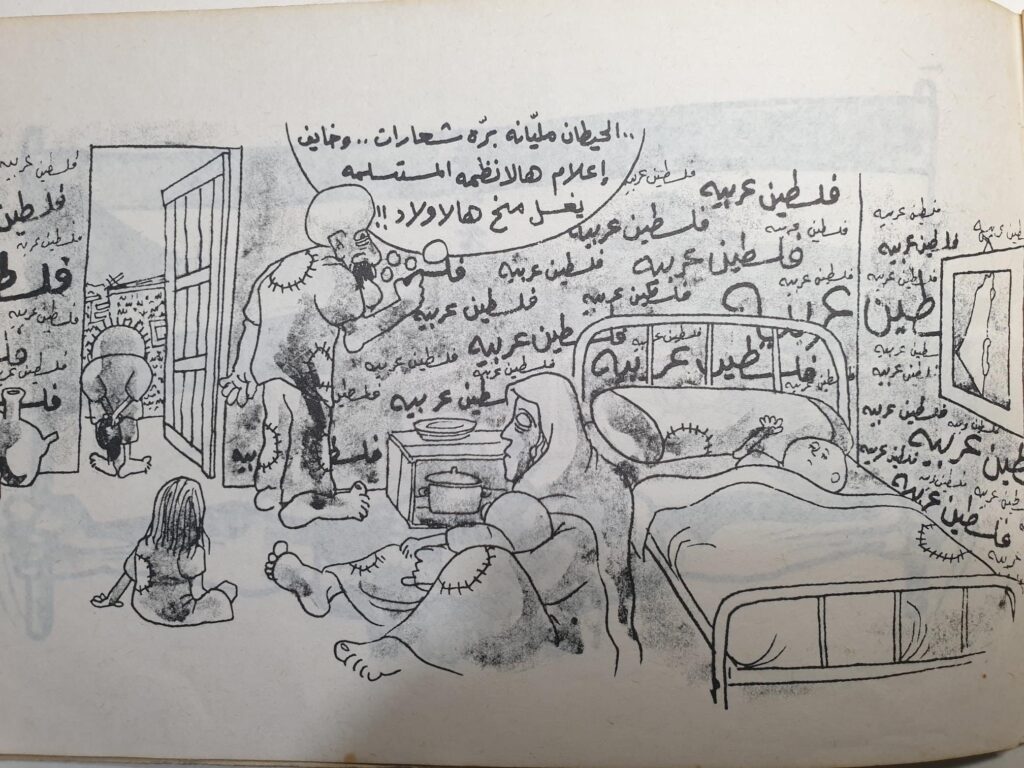 ..الحيطان مليّانه برّه شعارات .. وخايف
إعلام هالانظمه المستسلمه
يغسل مخ هالاولاد !!
فلسطين عربيه
فلسطين عربيه
فلسطين عربيه
فلسطين عربيه
فلسطين عربيه
فلسطين عربيه
فلسطين عربيه
فلسطين عربيه
فلسطين عربيه
فلسطين عربيه
فلسطين عربيه
فلسطين عربيه
فلسطين عربيه
فلسطين عربيه
فلسطين عربيه
فلسطين عربيه
فلسطين عربيه
فلسطين عربيه
فلسطين عربيه
فلسطين عربيه